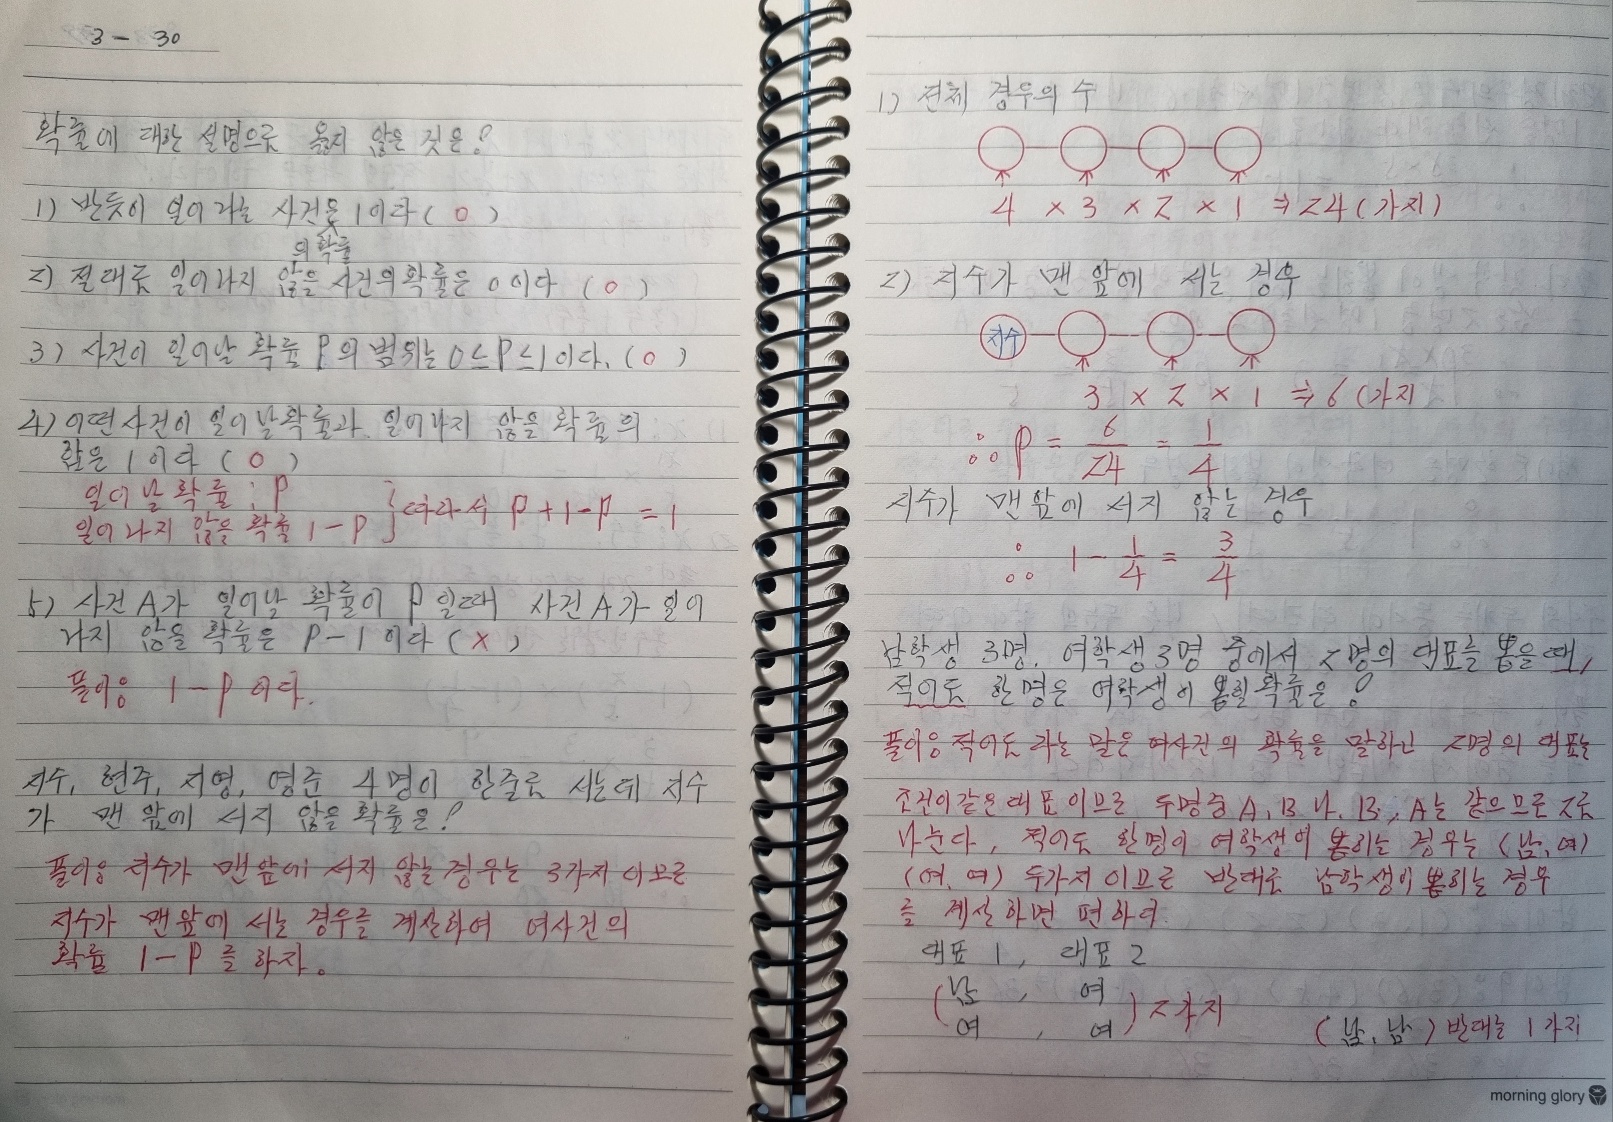 3 - 30
확률에 대한 설명으로 옳지 않은 것은?
1) 반듯이 일어나는 사건은 1이다 ( o )
의 확률
2) 절대로 일어나지 않을 사건의 확률은 0이다 ( o )
3) 사건이 일어날 확률 P의 범위는 0≤P≤1이다. ( o )
4) 어떤 사건이 일어날 확률과 일어나지 않을 확률의
합은 1이다 ( o )
일어날 확률 : P
일어나지 않을 확률 1-P } 따라서 P+1-P = 1
5) 사건 A가 일어날 확률이 P일때 사건 A가 일어
나지 않을 확률은 P-1이다 ( x )
풀이 ⇒ 1-P이다.
지수, 현주, 지영, 영준 4명이 한줄로 서는데 지수
가 맨 앞에 서지 않을 확률은?
풀이 ⇒ 지수가 맨앞에 서지 않는 경우는 3가지 이므로
지수가 맨 앞에 서는 경우를 계산하여 여사건의
확률 1-P를 하자.
1) 전체 경우의 수
4 x 3 x 2 x 1 ⇒ 24 (가지)
2) 지수가 맨 앞에 서는 경우
지수
3 x 2 x 1 ⇒ 6 (가지
∴ P = 6/24 = 1/4
지수가 맨 앞에 서지 않는 경우
∴ 1 - 1/4 = 3/4
남학생 3명, 여학생 3명 중에서 2명의 대표를 뽑을 때,
적어도 한 명은 여학생이 뽑힐 확률은?
풀이 ⇒ 적어도 라는 말은 여사건의 확률을 말하고 2명의 대표는
조건이 같은 대표 이므로 두명중 A, B 나, B, A는 같으므로 2로
나눈다, 적어도 한명이 여학생이 뽑히는 경우는 (남, 여)
(여, 여) 두가지 이므로 반대로 남학생이 뽑히는 경우
를 계산하면 편하다.
대표 1, 대표 2
( 남 , 여
여 , 여 ) 2가지
( 남, 남 ) 반대는 1가지
morning glory